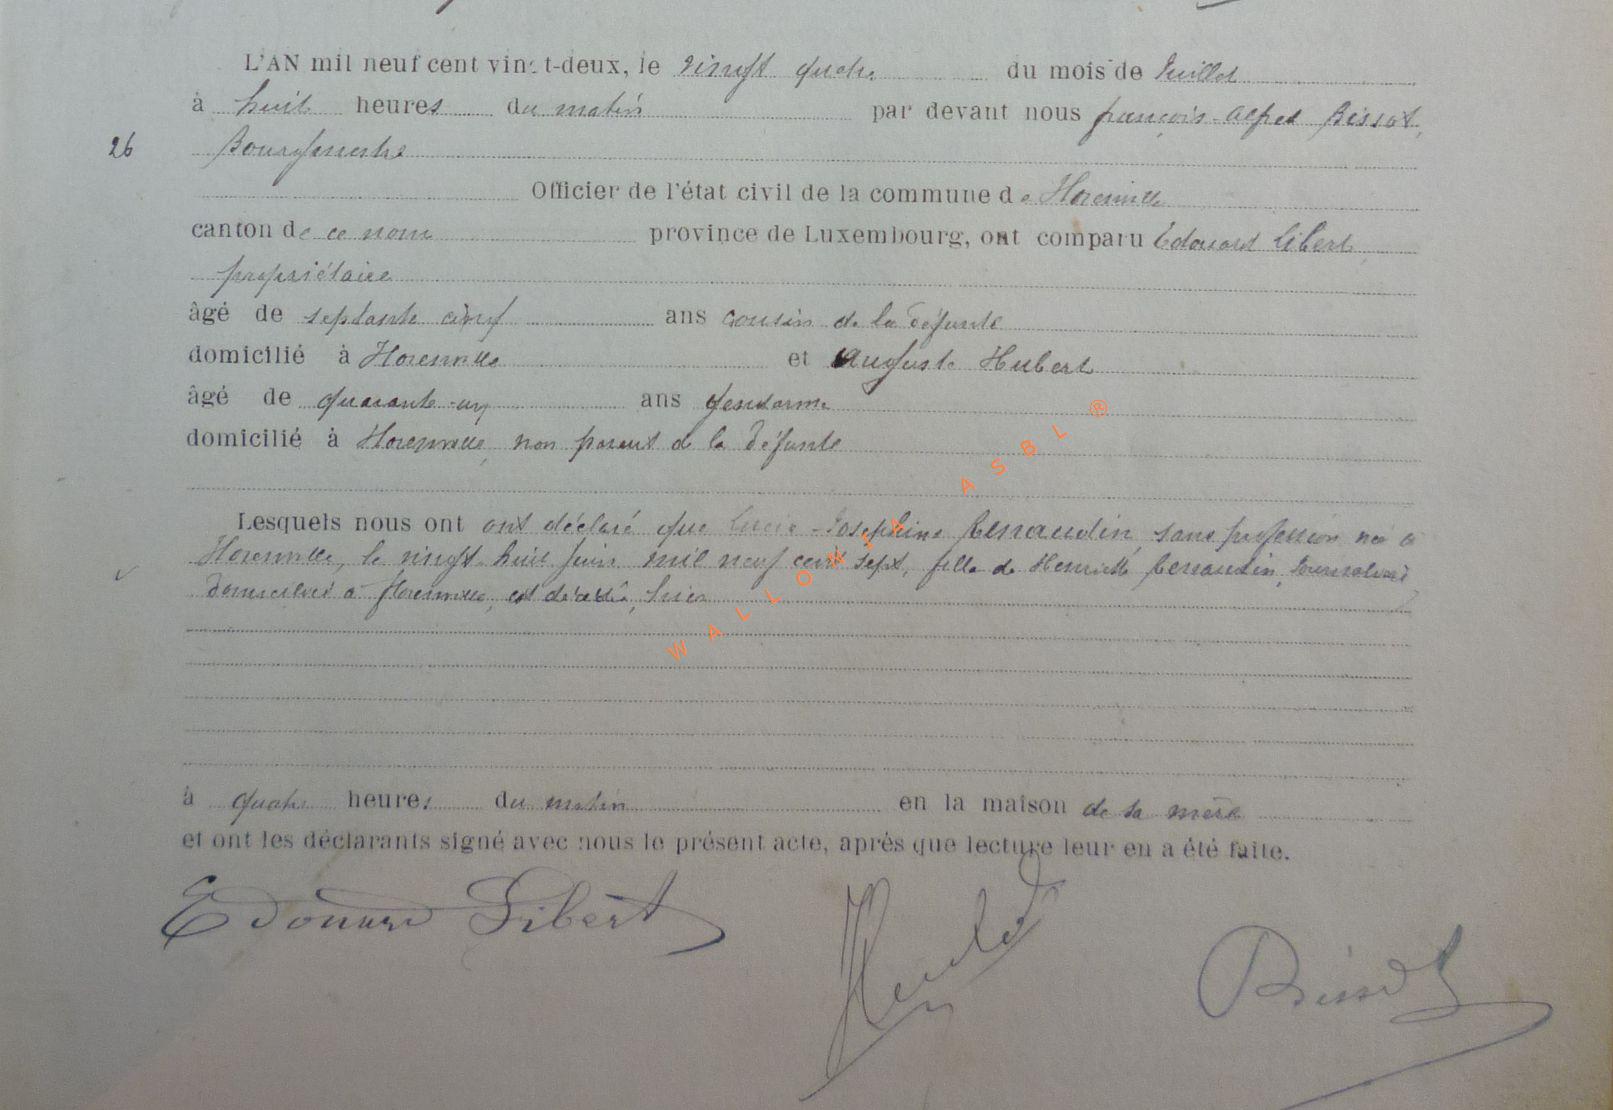 L'AN mil neuf cent vingt-deux, le vingt quatre du mois de Juillet
à huit heures du matin par devant nous françois-alfred Bissot,
26 Bourgmestre
Officier de l'état civil de la commune de Florenville
canton de ce nom province de Luxembourg, ont comparu Edouard Gibert
propriétaire
âgé de septante cinq ans cousin de la défunte
domicilié à Florenville et Auguste Hubert
âgé de quarante-un ans gendarme
domicilié à Florenville, non parent de la défunte
Lesquels nous ont ont déclaré que Lucie-Josephine Renaudin, sans profession née à
Florenville, le vingt-huit juin mil neuf cent sept, fille de Henriette Renaudin, Journalière
domiciliée à Florenville, est décédée, hier
à quatre heures du matin en la maison de sa mère
et ont les déclarants signé avec nous le présent acte, après que lecture leur en a été faite.
Edouard Gibert
Bissot
WALLONIA ASBL ®